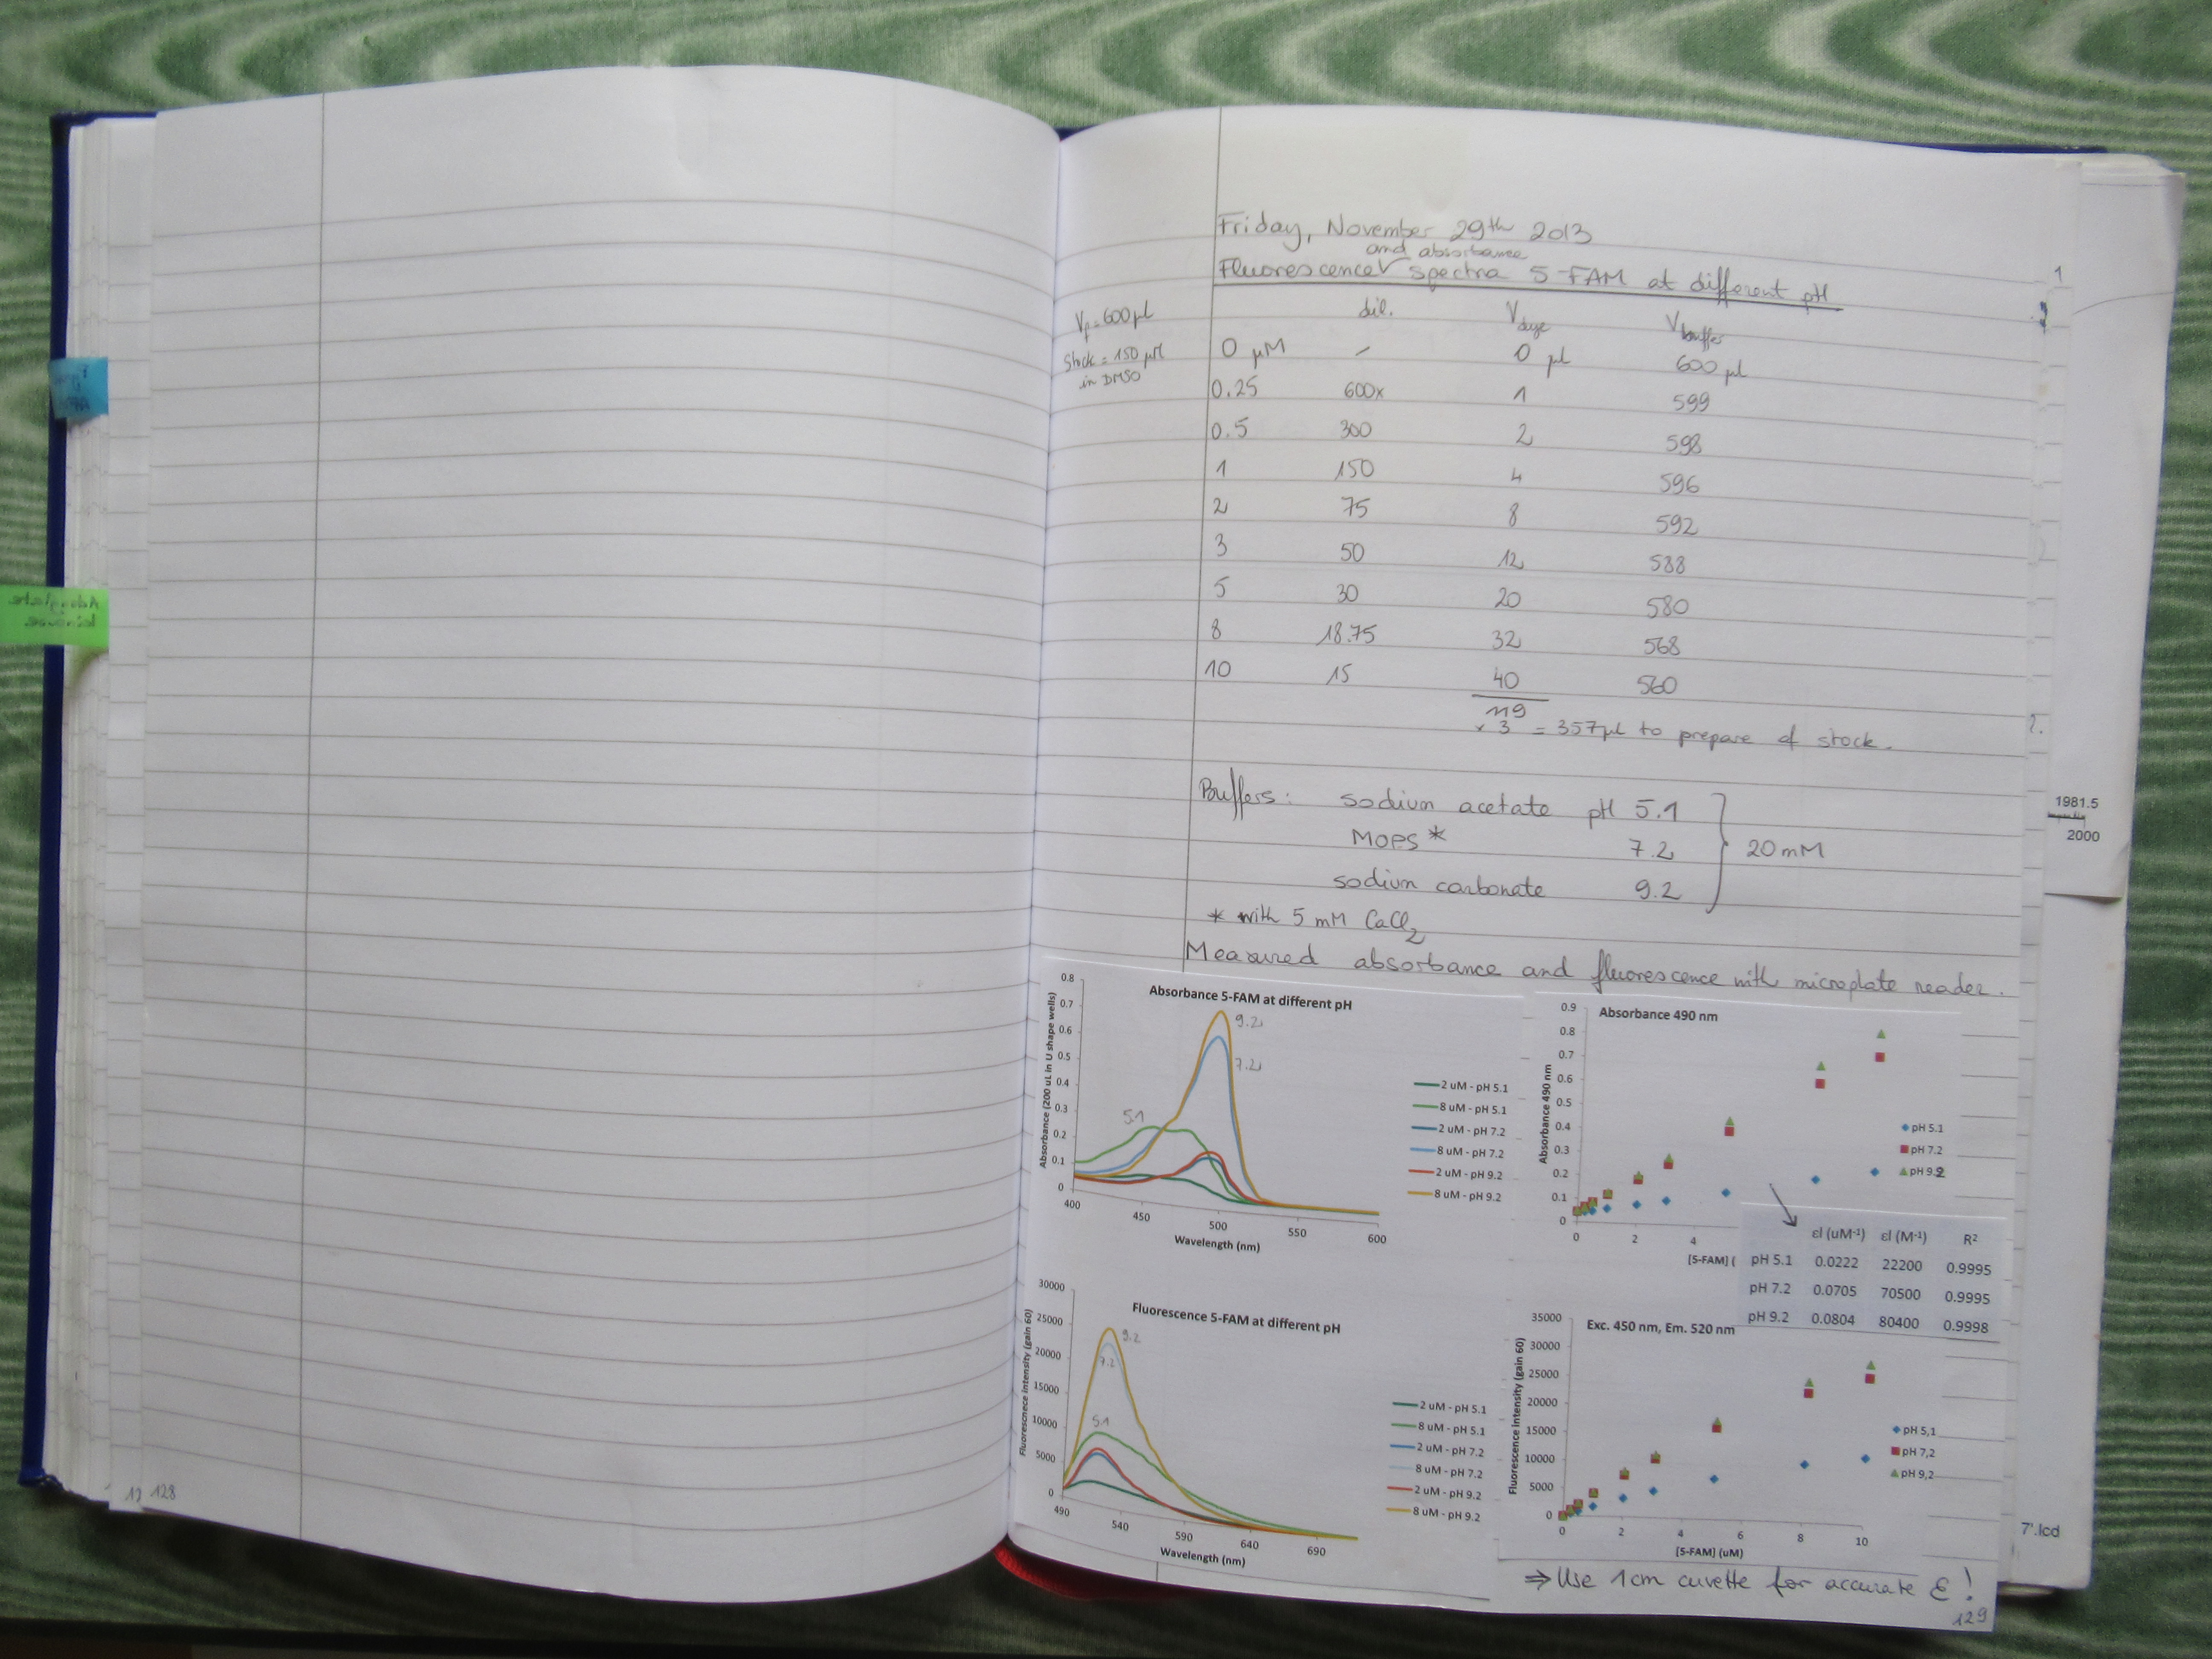 Friday, November 29th 2013
and absorbance
Fluorescence√ spectra 5-FAM at different pH
Vf = 600 µl
Stock = 150 µM
in DMSO
dil. Vdye Vbuffer
0 µM / 0 µl 600 µl
0.25 600x 1 599
0.5 300 2 598
1 150 4 596
2 75 8 592
3 50 12 588
5 30 20 580
8 18.75 32 568
10 15 40 560
119
x 3 = 357µl to prepare of stock.
Buffers: sodium acetate pH 5.1
MOPS * 7.2 } 20 mM
sodium carbonate 9.2
* with 5 mM CaCl2
Measured absorbance and fluorescence with microplate reader.
Absorbance 5-FAM at different pH
Absorbance (200 uL in U shape wells)
0.8
0.7
0.6
0.5
0.4
0.3
0.2
0.1
0
400 450 500 550 600
Wavelength (nm)
9.2
7.2
5.1
2 uM - pH 5.1
8 uM - pH 5.1
2 uM - pH 7.2
8 uM - pH 7.2
2 uM - pH 9.2
8 uM - pH 9.2
Absorbance 490 nm
Absorbance 490 nm
0.9
0.8
0.7
0.6
0.5
0.4
0.3
0.2
0.1
0
0 2 4
[5-FAM] (
pH 5.1
pH 7.2
pH 9.2
εl (uM-1) εl (M-1) R2
pH 5.1 0.0222 22200 0.9995
pH 7.2 0.0705 70500 0.9995
pH 9.2 0.0804 80400 0.9998
Fluorescence 5-FAM at different pH
Fluorescnece intensity (gain 60)
30000
25000
20000
15000
10000
5000
0
490 540 590 640 690
Wavelength (nm)
9.2
7.2
5.1
2 uM - pH 5.1
8 uM - pH 5.1
2 uM - pH 7.2
8 uM - pH 7.2
2 uM - pH 9.2
8 uM - pH 9.2
Exc. 450 nm, Em. 520 nm
Fluorescence intensity (gain 60)
35000
30000
25000
20000
15000
10000
5000
0
0 2 4 6 8 10
[5-FAM] (uM)
pH 5,1
pH 7,2
pH 9,2
⇒ Use 1cm cuvette for accurate ε!
129
128
12
1
2.
1981.5
2000
7'.lcd
Adenylate
kinase